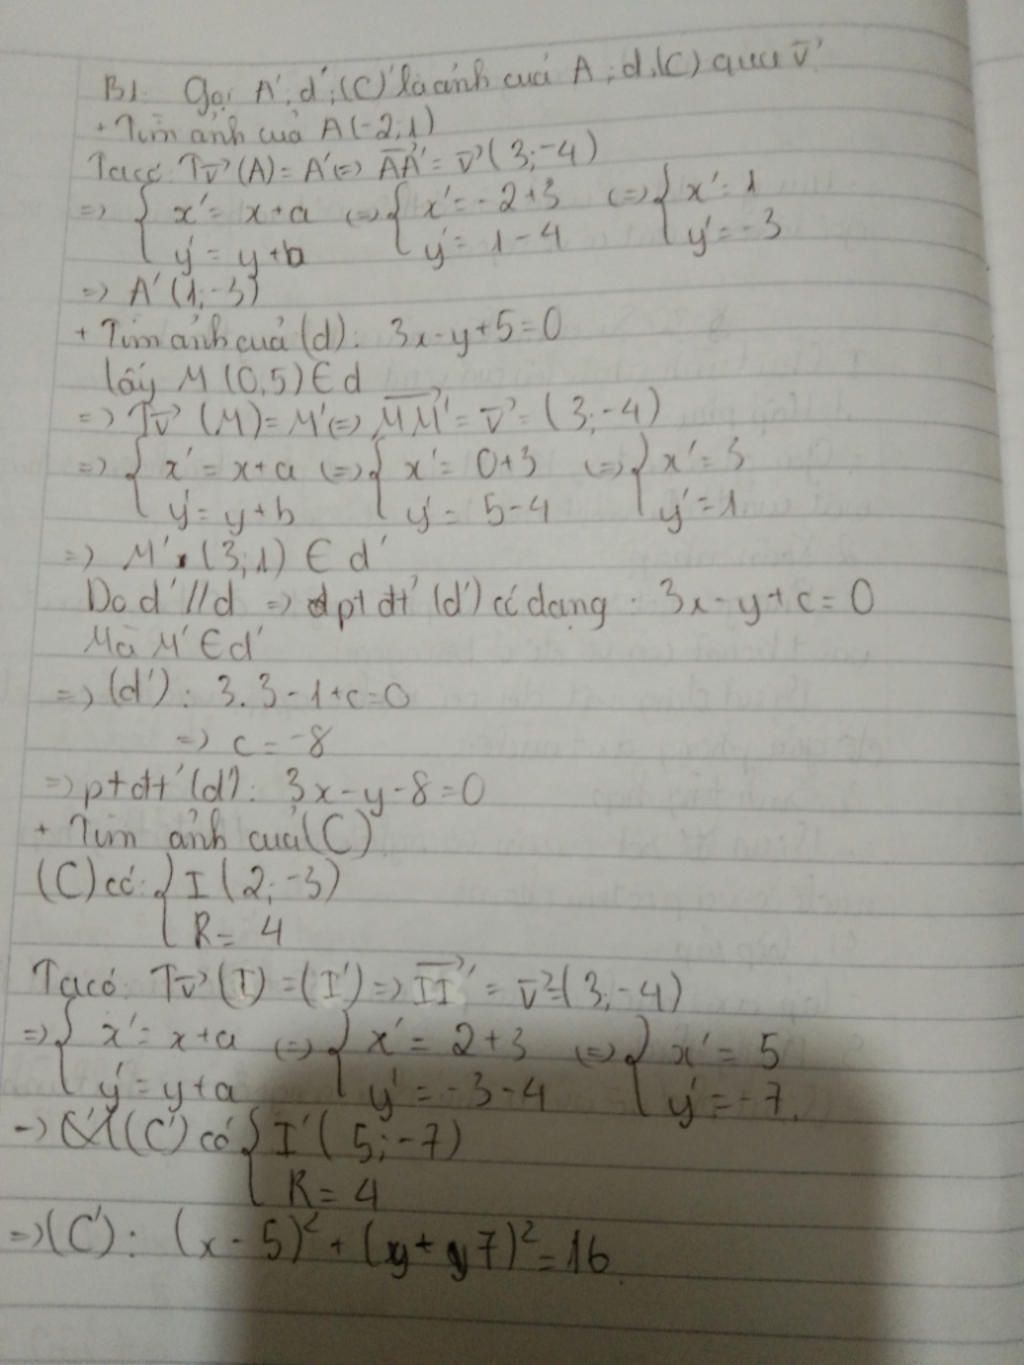 B1. Gọi A', d', (C)' là ảnh của A; d, (C) qua v⃗
+ Tìm ảnh của A(-2;1)
Ta có: Tv⃗ (A) = A' (=) AA'⃗ = v⃗ (3;-4)
=> { x' = x+a (=) { x' = -2+3 (=) { x' = 1
y' = y+b y' = 1-4 y' = -3
=> A' (1;-3)
+ Tìm ảnh của (d): 3x-y+5=0
lấy M (0,5) ∈ d
=> Tv⃗ (M) = M' (=) MM'⃗ = v⃗ = (3;-4)
=> { x' = x+a (=) { x' = 0+3 (=) { x' = 3
y' = y+b y' = 5-4 y' = 1
=> M' (3;1) ∈ d'
Do d' // d => ptđt' (d') có dạng : 3x-y+c=0
Mà M' ∈ d'
=> (d') : 3.3-1+c=0
=> c = -8
=> ptđt' (d'): 3x-y-8=0
+ Tìm ảnh của (C)
(C) có: { I (2;-3)
R = 4
Ta có: Tv⃗ (I) = (I') => II'⃗ = v⃗ = (3;-4)
=> { x' = x+a (=) { x' = 2+3 (=) { x' = 5
y' = y+a y' = -3-4 y' = -7.
=> (C') có { I' (5;-7)
R = 4
=> (C') : (x-5)² + (y+7)² = 16.